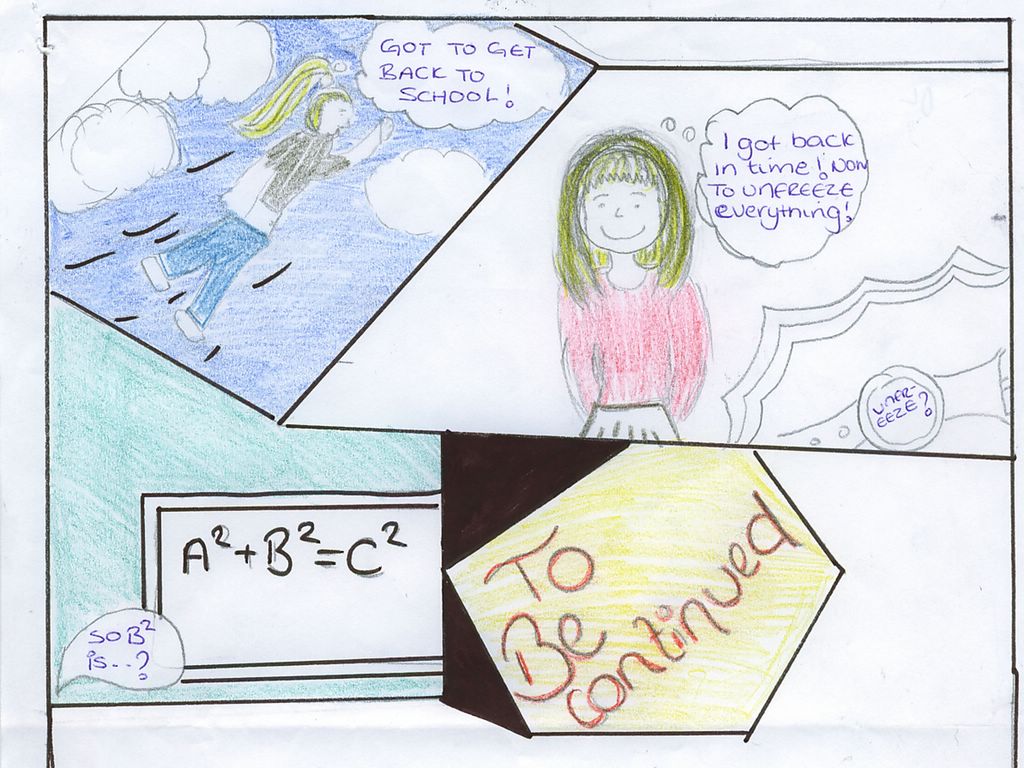 GOT TO GET
BACK TO
SCHOOL!
I got back
in time! Now
TO UNFREEZE
everything!
UNFR-
EEZE?
A²+B²=C²
SO B²
is...?
To
Be
continued